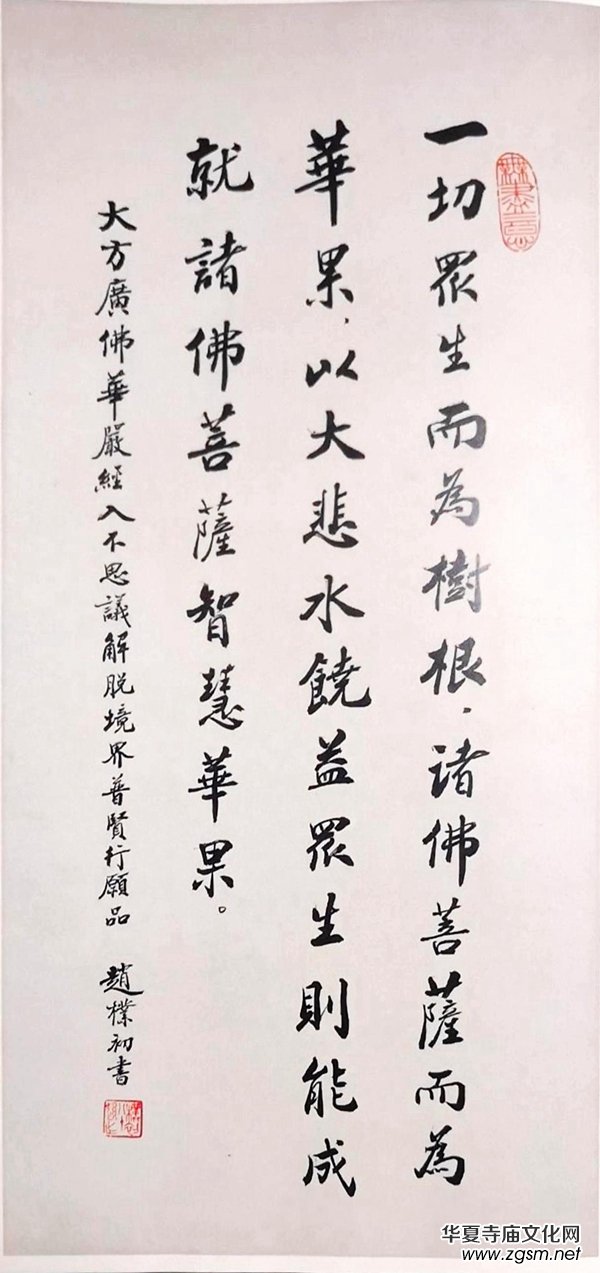 一切眾生而為樹根，諸佛菩薩而為
華果，以大悲水饒益眾生則能成
就諸佛菩薩智慧華果。
大方廣佛華嚴經入不思議解脱境界普賢行願品 趙樸初書
無盡意
华夏寺庙文化网
www.zgsm.net